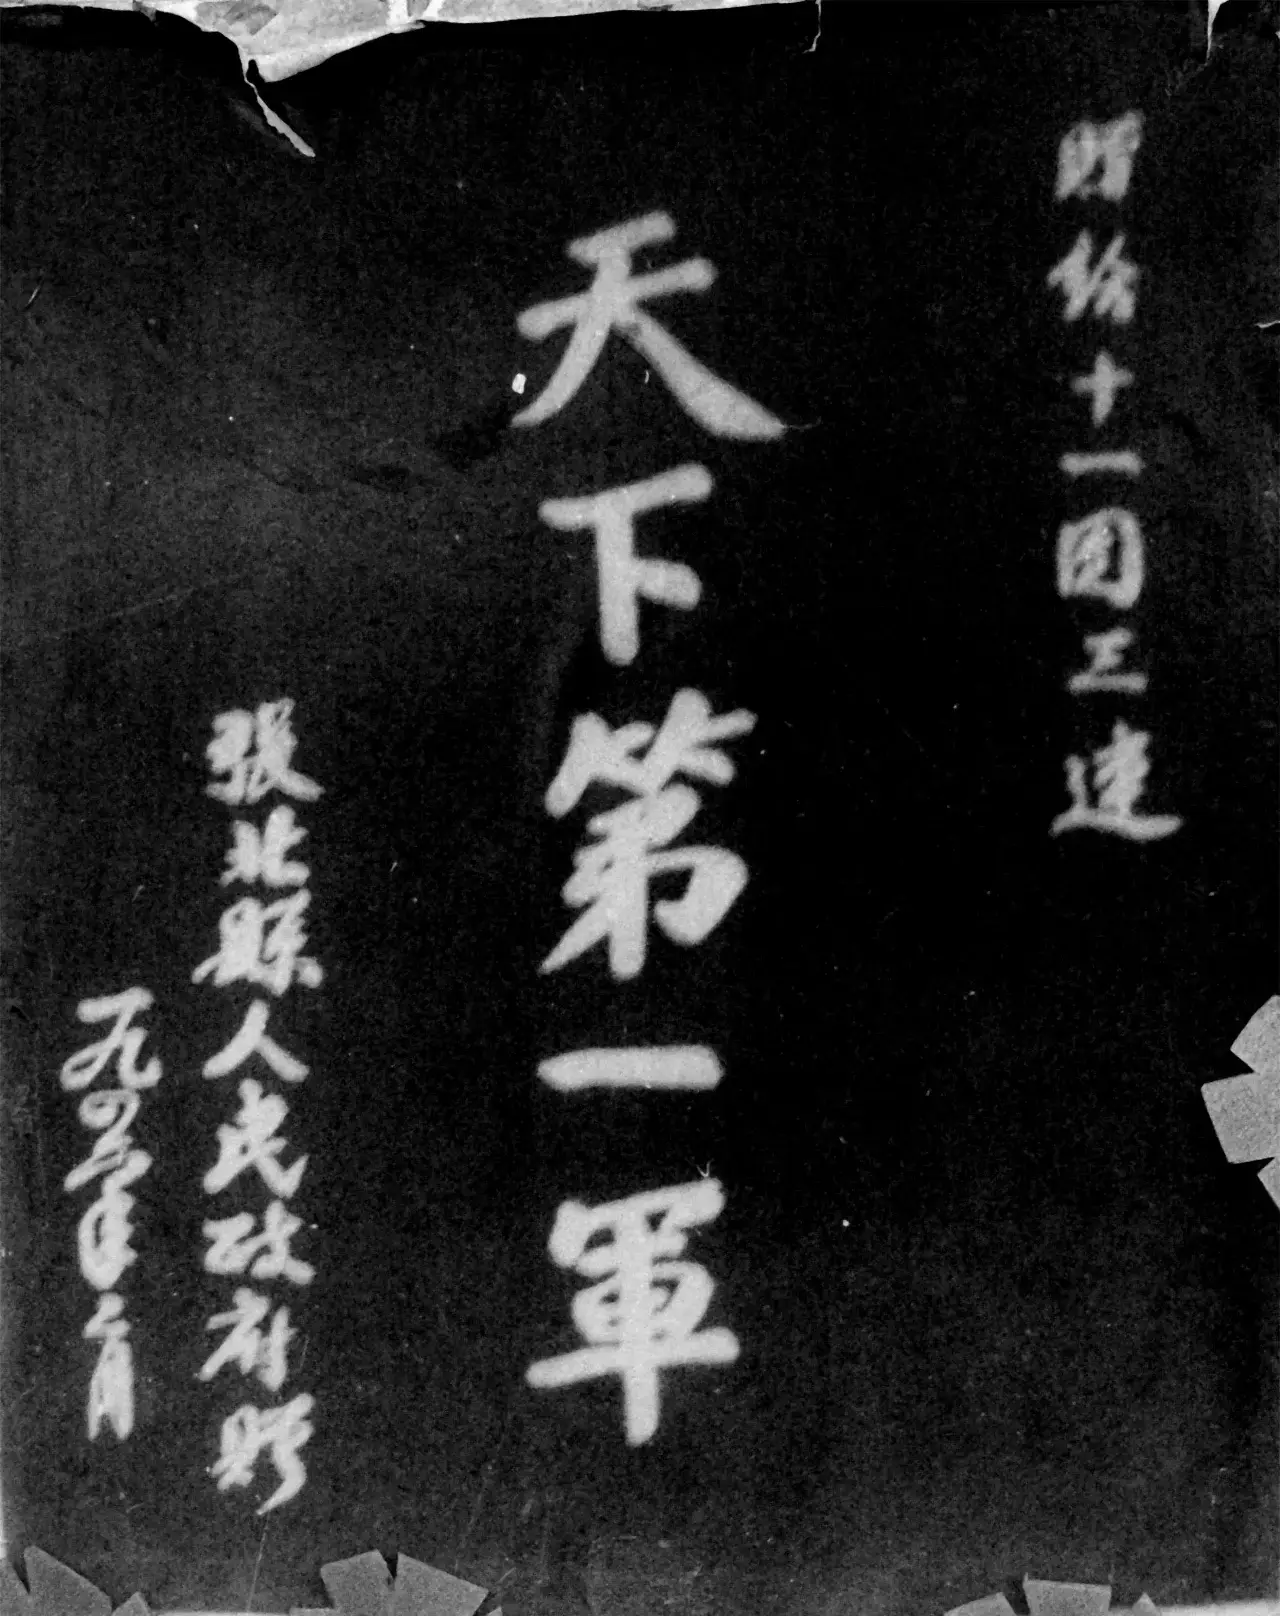 贈給十一團三連
天下第一軍
張北縣人民政府
一九四年二月